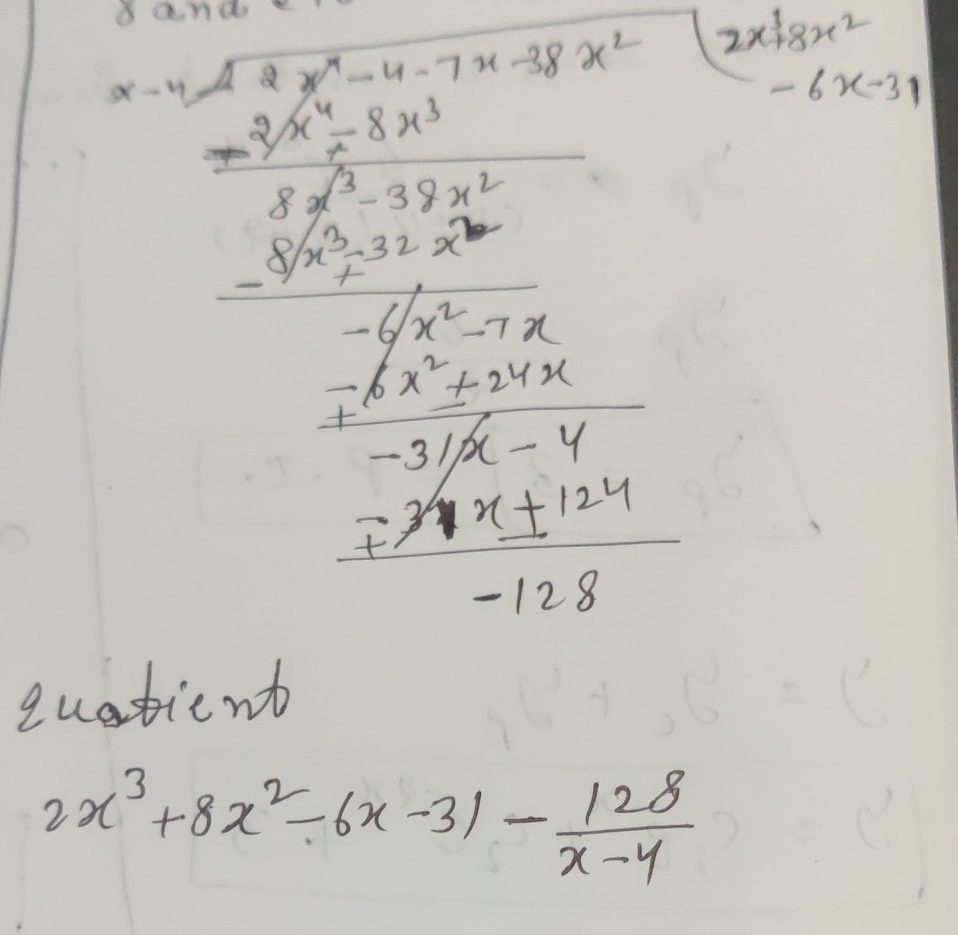 8 and
x-4 2x⁴-4-7x-38x² 2x³+8x²
-6x-31
2x⁴-8x³
- +
8x³-38x²
8x³-32x²
- +
-6x²-7x
-6x²+24x
+ -
-31x-4
-31x+124
+ -
-128
quatient
2x³+8x²-6x-31-128/x-4